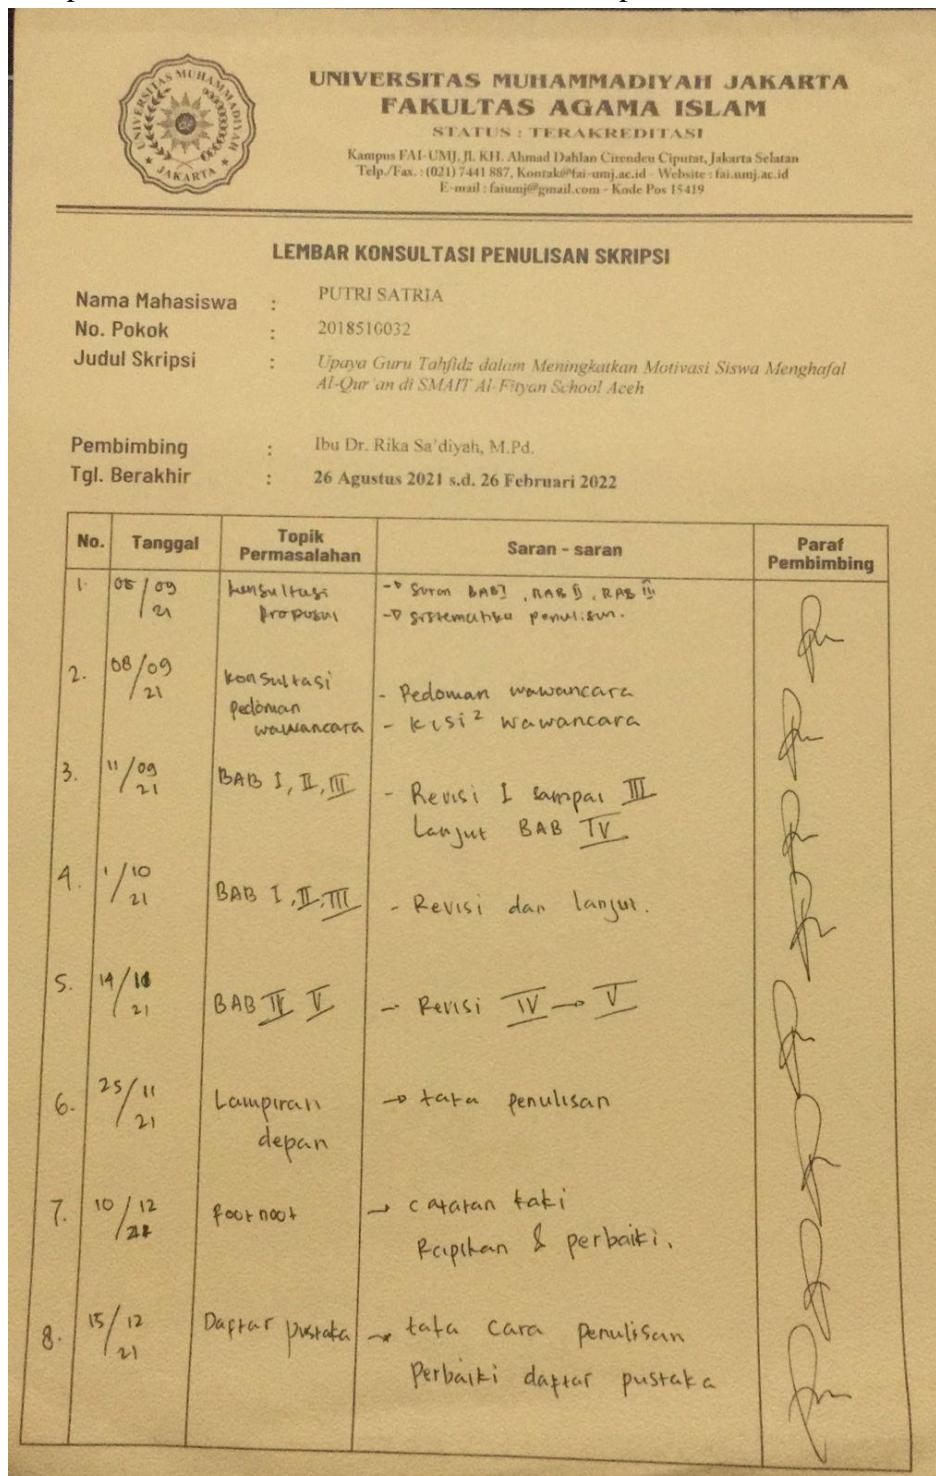 UNIVERSITAS MUHAMMADIYAH JAKARTA
UNIVERSITAS MUHAMMADIYAH JAKARTA
FAKULTAS AGAMA ISLAM
STATUS : TERAKREDITASI
Kampus FAI-UMJ, Jl. KH. Ahmad Dahlan Cirendeu Ciputat, Jakarta Selatan
Telp./Fax. : (021) 7441 887, Kontak@fai-umj.ac.id - Website : fai.umj.ac.id
E-mail : faiumj@gmail.com - Kode Pos 15419
LEMBAR KONSULTASI PENULISAN SKRIPSI
Nama Mahasiswa : PUTRI SATRIA
No. Pokok : 2018510032
Judul Skripsi : Upaya Guru Tahfidz dalam Meningkatkan Motivasi Siswa Menghafal
Al-Qur'an di SMAIT Al-Fityan School Aceh
Pembimbing : Ibu Dr. Rika Sa'diyah, M.Pd.
Tgl. Berakhir : 26 Agustus 2021 s.d. 26 Februari 2022
No. Tanggal Topik Permasalahan Saran - saran Paraf Pembimbing
1. /09/21 konsultasi proposal BAB I, BAB II, BAB III
sistematika penulisan.
2. 08/09/21 konsultasi pedoman wawancara - Pedoman wawancara
- kisi² wawancara
3. 11/09/21 BAB I, II, III - Revisi I sampai III
Lanjut BAB IV
4. 1/10/21 BAB I, II, III - Revisi dan lanjut.
5. 14/10/21 BAB IV V - Revisi IV → V
6. 25/11/21 Lampiran depan → tata penulisan
7. 10/12/21 footnoot → catatan kaki
Rapikan & perbaiki.
8. 15/12/21 Daftar pustaka → tata cara penulisan
Perbaiki daftar pustaka